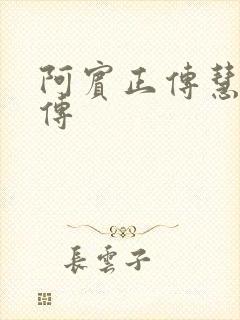 阿賓正傳慧
傳
長雲子